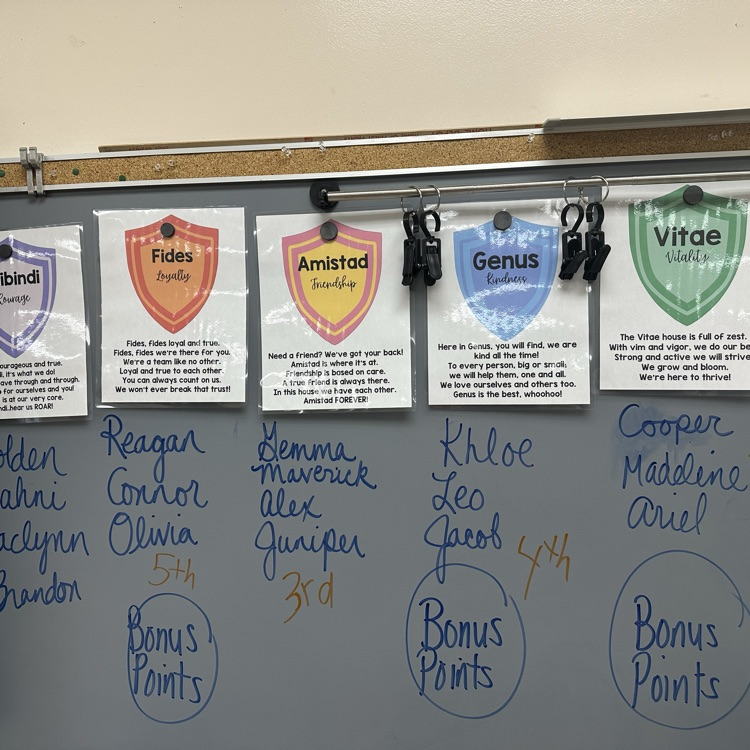 ibindi
Courage
ourageous and true.
ll, it's what we do!
ave through and through.
for ourselves and you!
is at our very core.
ndi..hear us ROAR!
olden
ahni
aclynn
Brandon
Fides
Loyalty
Fides, fides loyal and true.
Fides, fides we're there for you.
We're a team like no other.
Loyal and true to each other.
You can always count on us.
We won't ever break that trust!
Reagan
Connor
Olivia
5th
Bonus
Points
Amistad
Friendship
Need a friend? We've got your back!
Amistad is where it's at.
Friendship is based on care.
A true friend is always there.
In this house we have each other.
Amistad FOREVER!
Gemma
Maverick
Alex
Juniper
3rd
Genus
Kindness
Here in Genus, you will find, we are
kind all the time!
To every person, big or small;
we will help them, one and all.
We love ourselves and others too.
Genus is the best, whoohoo!
Khloe
Leo
Jacob
4th
Bonus
Points
Vitae
Vitality
The Vitae house is full of zest.
With vim and vigor, we do our be
Strong and active we will strive
We grow and bloom.
We're here to thrive!
Cooper
Madeline
Ariel
Bonus
Points